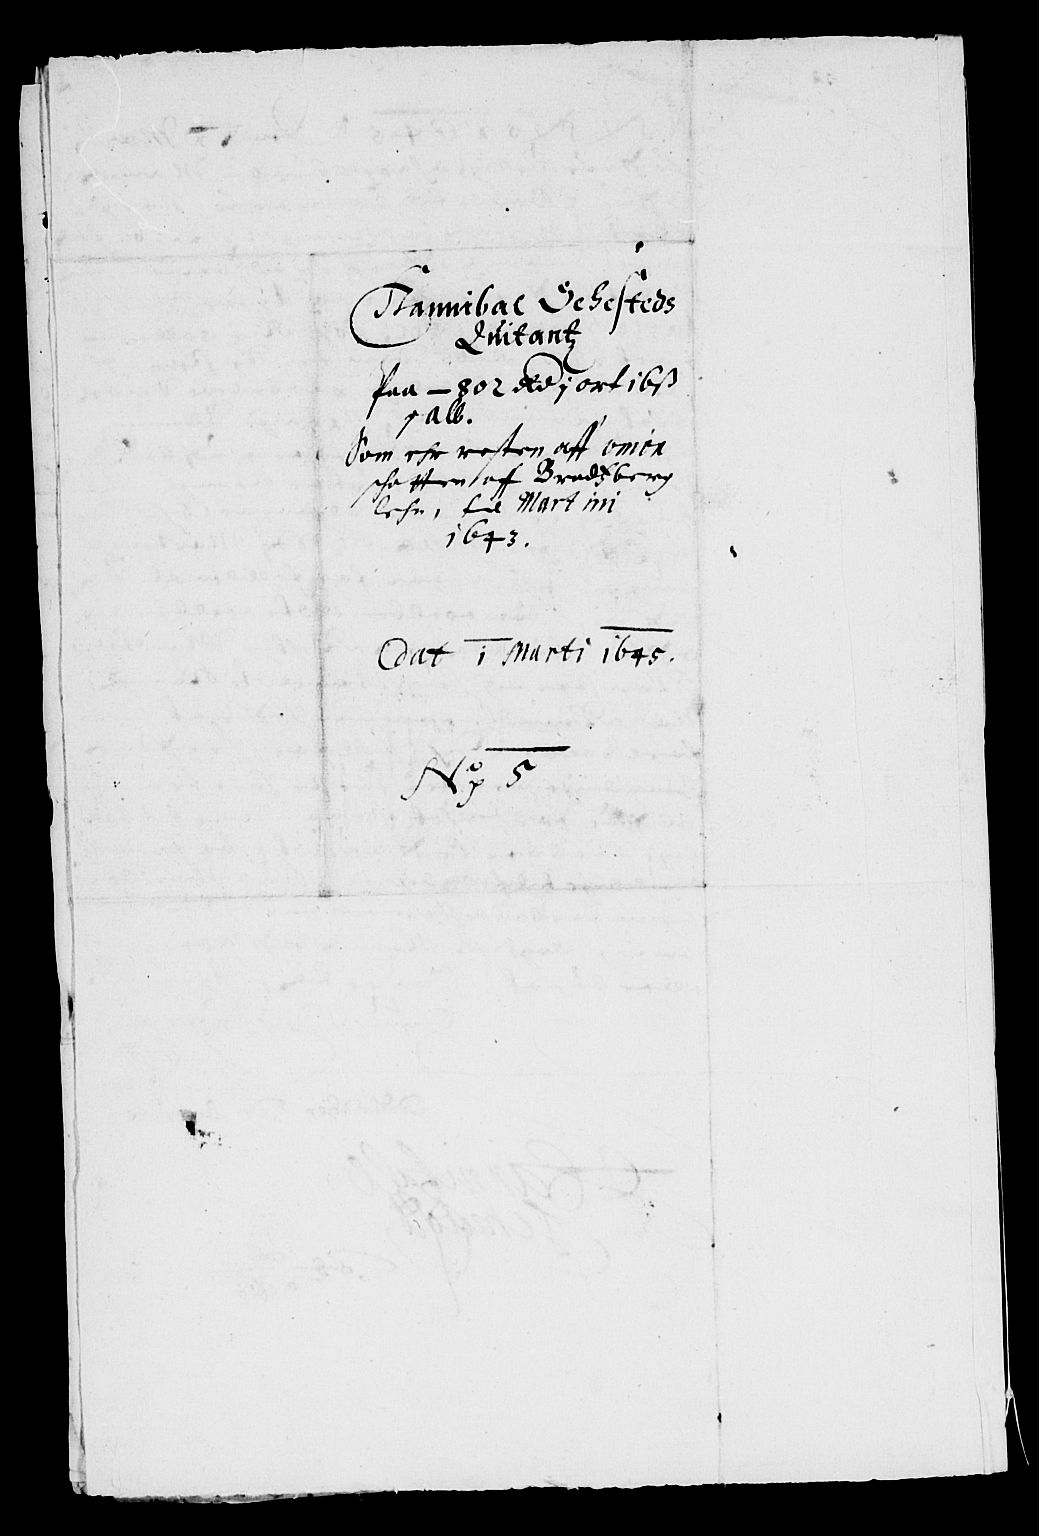 Hannibal Sehesteds
Quitantz
Paa — 802 Rd j ort 16 ß
j alb.
Som ehr resten aff
schatten aff Bradtzberg
lehn, til Martini
1643.
Dat 1 Marti 1645.
No 5